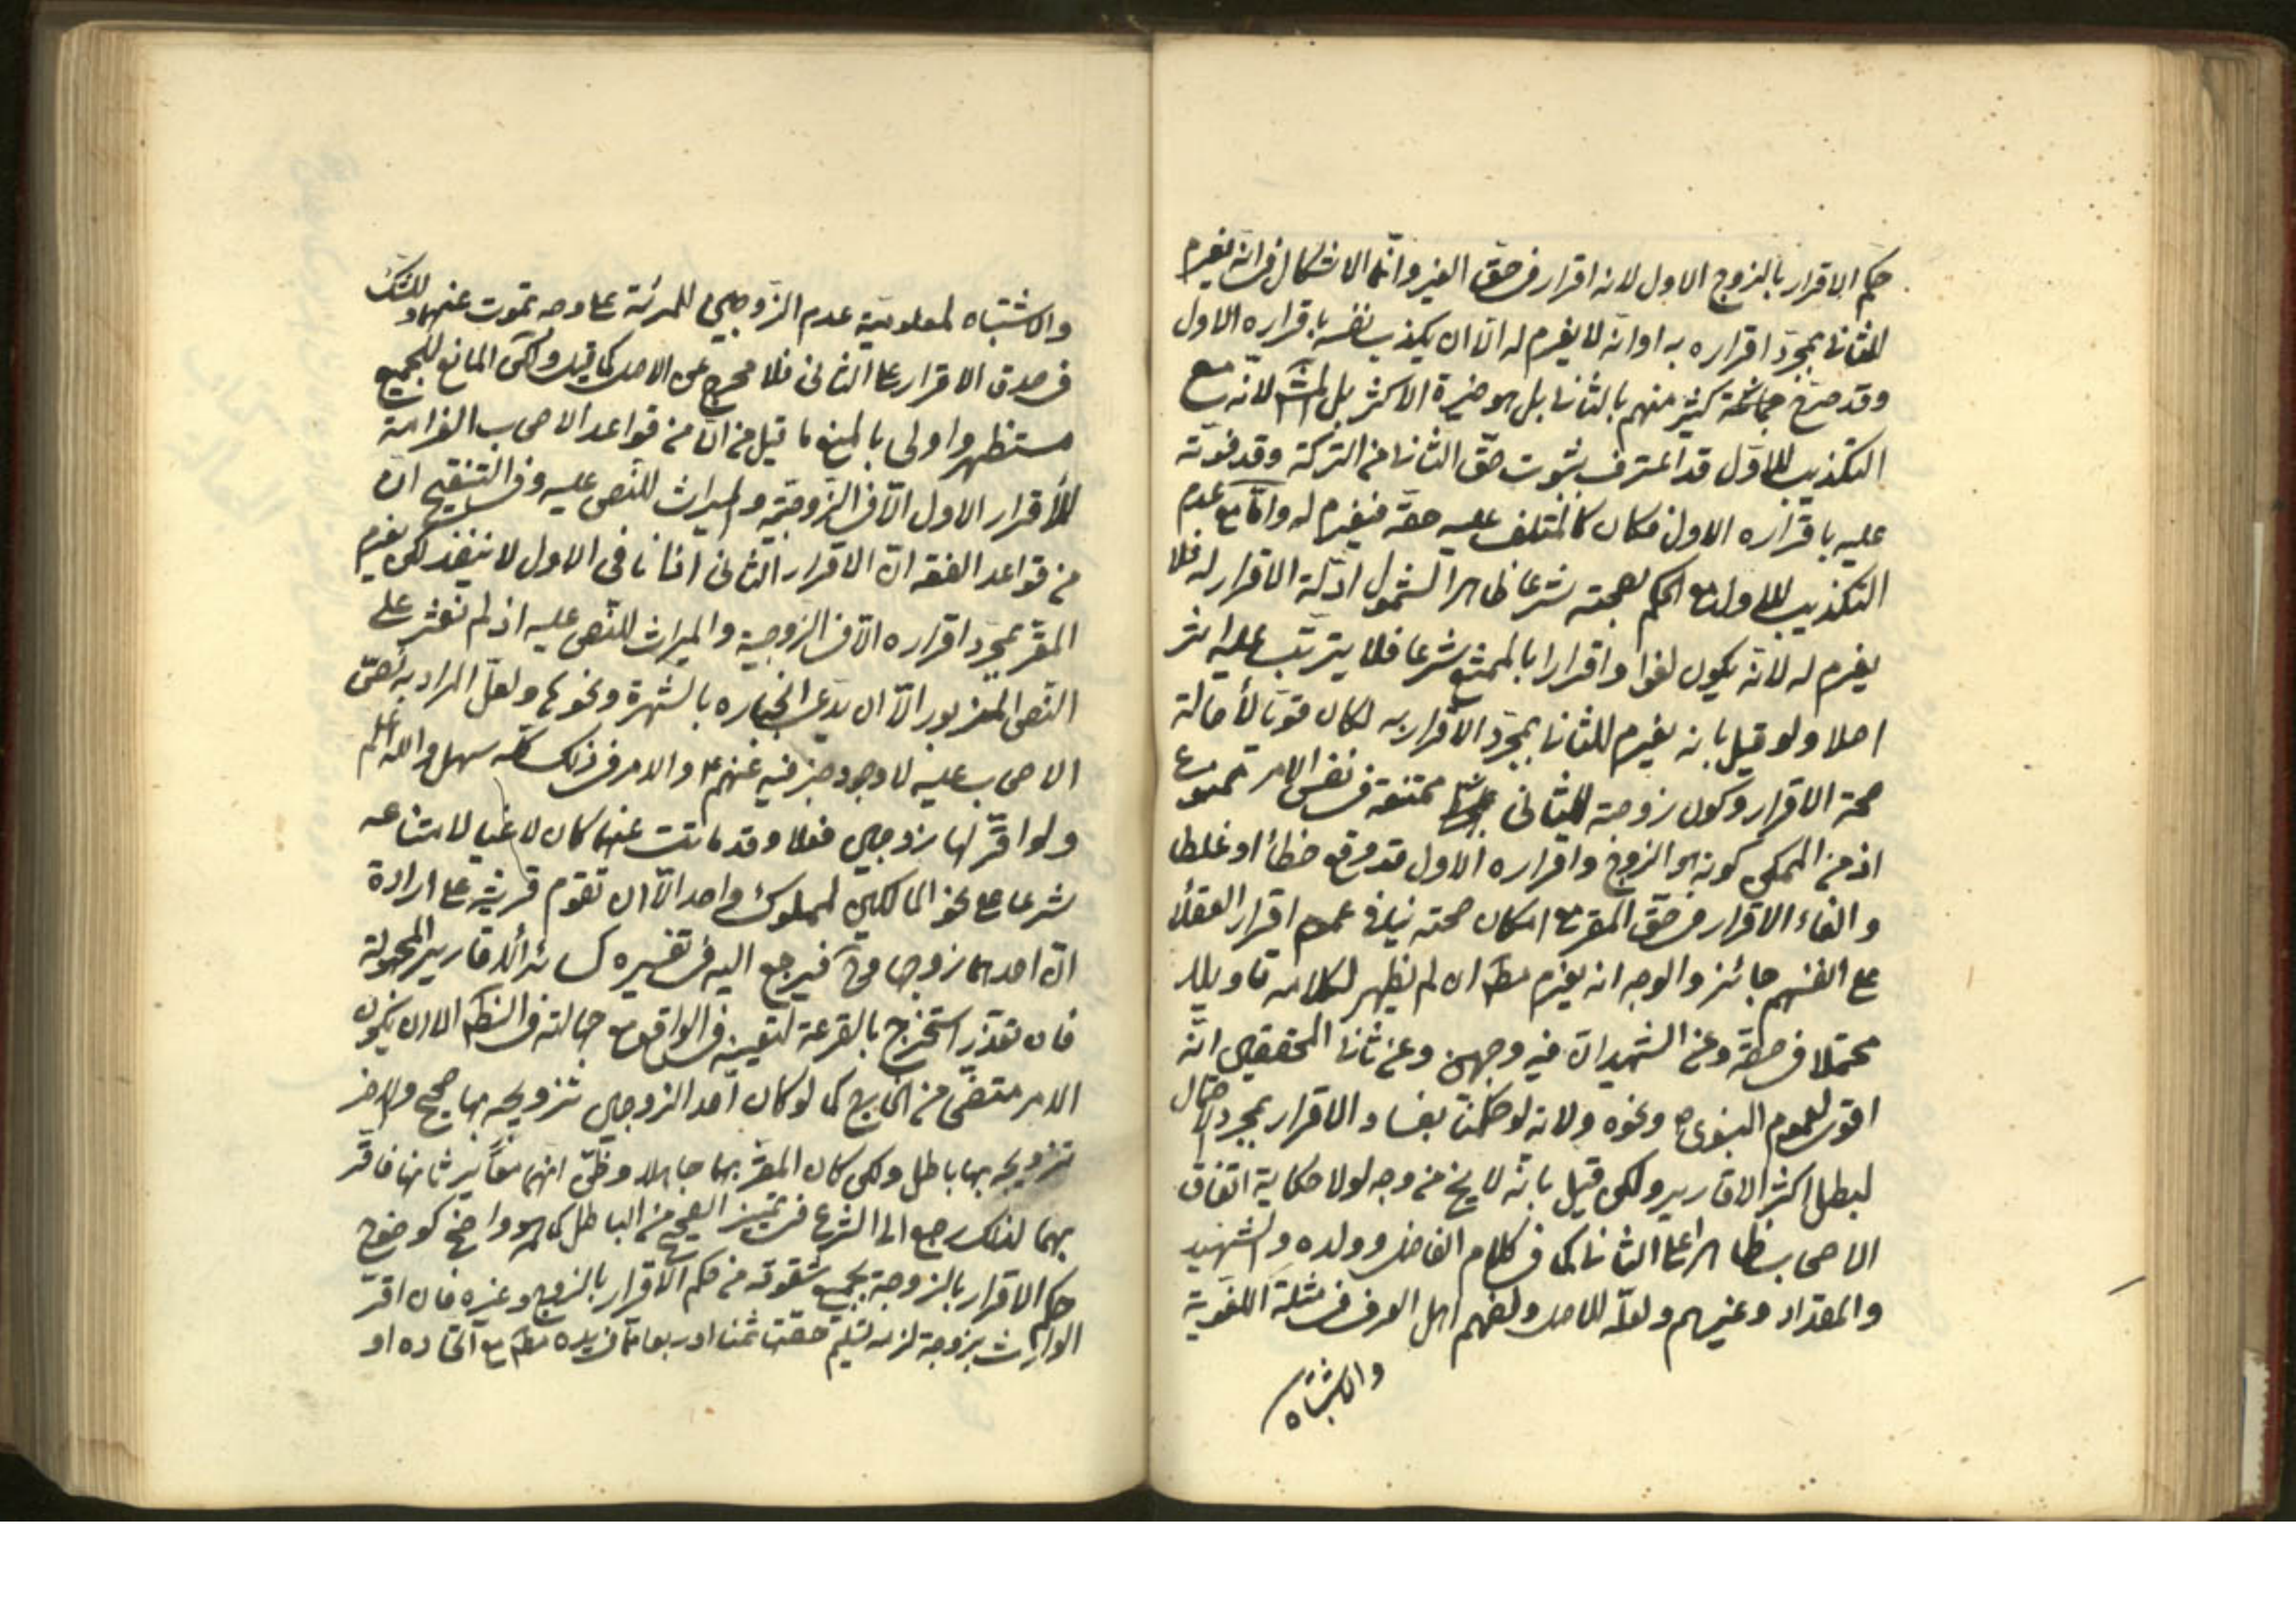 حكم الاقرار بالزوج الاول لانه اقرار في حق الغير وانما الاشكال في انه يغرم
للثاني بمجرد اقراره به او انه لا يغرم له الا ان يكذب نفسه باقراره الاول
وقد صرح جماعة كثير منهم بالثاني بل هو خيرة الاكثر بل لانه مع
التكذيب للاول قد اعترف بثبوت حق الثاني من التركة وقد فوته
عليه باقراره الاول فكان كالمتلف عليه حقه فيغرم له واما مع عدم
التكذيب للاول مع الحكم بصحته شرعا ظاهرا لشمول ادلة الاقرار له فلا
يغرم له لانه يكون لغوا واقرارا بالممتنع شرعا فلا يترتب عليه اثر
اصلا ولو قيل بانه يغرم للثاني بمجرد الاقرار به لكان قويا لأصالة
صحة الاقرار وكون زوجة للثاني ممتنعة في نفس الامر ممنوع
اذ من الممكن كونه هو الزوج واقراره الاول قد وقع خطأ او غلطا
والغاء الاقرار في حق المقر مع امكان صحته ينافي عموم اقرار العقلاء
على انفسهم جائز والوجه انه يغرم مط ان لم يظهر لكلامه تاويلا
محتملا في حقه وعن الشهيد ان فيه وجهين وعن ثاني المحققين انه
اقوى لعموم النبوي ونحوه ولانه لو حكمنا بفساد الاقرار بمجرد الاحتمال
لبطل اكثر الاقارير ولكن قيل بانه لا يخ من وجه لولا حكاية اتفاق
الاصحاب ظاهرا على الثاني كما في كلام الفاضل وولده والشهيد
والمقداد وغيرهم ولعله للاصل وفهم اهل العرف في مثله اللغوية
والاشتباه
والاشتباه لمعلومية عدم الزوجين للمرئة على وجه تموت عنهما وللشك
في صدق الاقرار على الثاني فلا مخرج عن الاصل كما قيل ولكن المانع للجميع
مستظهر واولى بالمنع ما قيل من ان من قواعد الاصحاب الغرامة
للأقرار الاول الا في الزوجية والميراث للنص عليه وفي التنقيح ان
من قواعد الفقه ان الاقرار الثاني اذا نافى الاول لا ينفذ لكن يغرم
المقر بمجرد اقراره الا في الزوجية والميراث للنص عليه اذ لم نعثر على
النص المزبور الا ان يدعى انجباره بالشهرة ونحوها ولعل المراد به نص
الاصحاب عليه لا وجود خبر فيه عنهم ع والامر في ذلك كله سهل والله اعلم
ولو اقر لها بزوجين فعلا وقد ماتت عنهما كان لاغيا لامتناعه
شرعا على نحو المالكين لمملوك واحد الا ان تقوم قرينة على ارادة
ان احدهما زوجها فيرجع اليه في تفسيره كسائر الاقارير المجهولة
فان تعذر استخرج بالقرعة لتعيينه في الواقع مع جهالته في الظاهر الا ان يكون
الامر مقتضى من الخارج كما لو كان احد الزوجين تزويجه بها صحيح والاخر
تزويجه بها باطل ولكن كان المقر بهما جاهلا وظن انهما معا يرثانها فاقر
بهما لذلك رجع الى الشرع في تمييز الصحيح من الباطل كما هو واضح كوضوح
حكم الاقرار بالزوجة بجميع شقوقه من حكم الاقرار بالزوج وغيره فان اقر
الوارث بزوجة لزمه تسليم حقها ثمنا او ربعا مما في يده مط مع اتحاده او